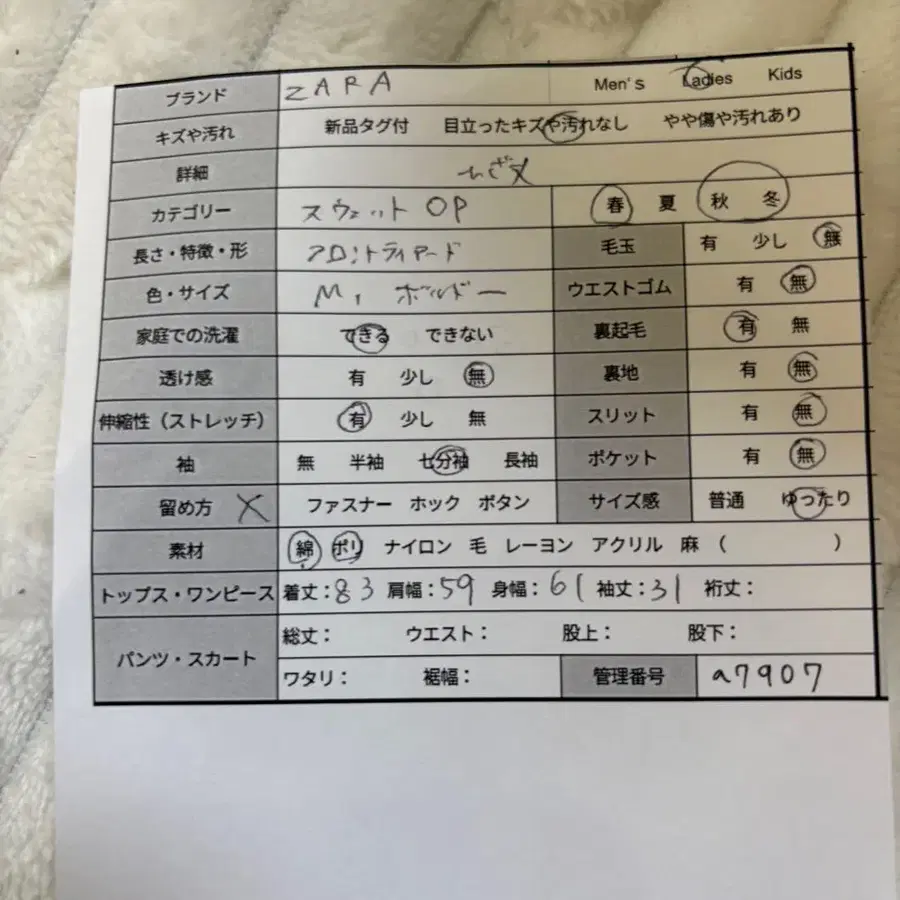 ブランド ZARA Men's Ladies Kids
キズや汚れ 新品タグ付 目立ったキズや汚れなし やや傷や汚れあり
詳細 ひざ丈
カテゴリー スウェット OP 春 夏 秋 冬
長さ・特徴・形 フロントティアード 毛玉 有 少し 無
色・サイズ M, ボルドー ウエストゴム 有 無
家庭での洗濯 できる できない 裏起毛 有 無
透け感 有 少し 無 裏地 有 無
伸縮性（ストレッチ） 有 少し 無 スリット 有 無
袖 無 半袖 七分袖 長袖 ポケット 有 無
留め方 X ファスナー ホック ボタン サイズ感 普通 ゆったり
素材 綿 ポリ ナイロン 毛 レーヨン アクリル 麻 （ ）
トップス・ワンピース 着丈：83 肩幅：59 身幅：61 袖丈：31 裄丈：
パンツ・スカート 総丈： ウエスト： 股上： 股下：
ワタリ： 裾幅： 管理番号 a7907